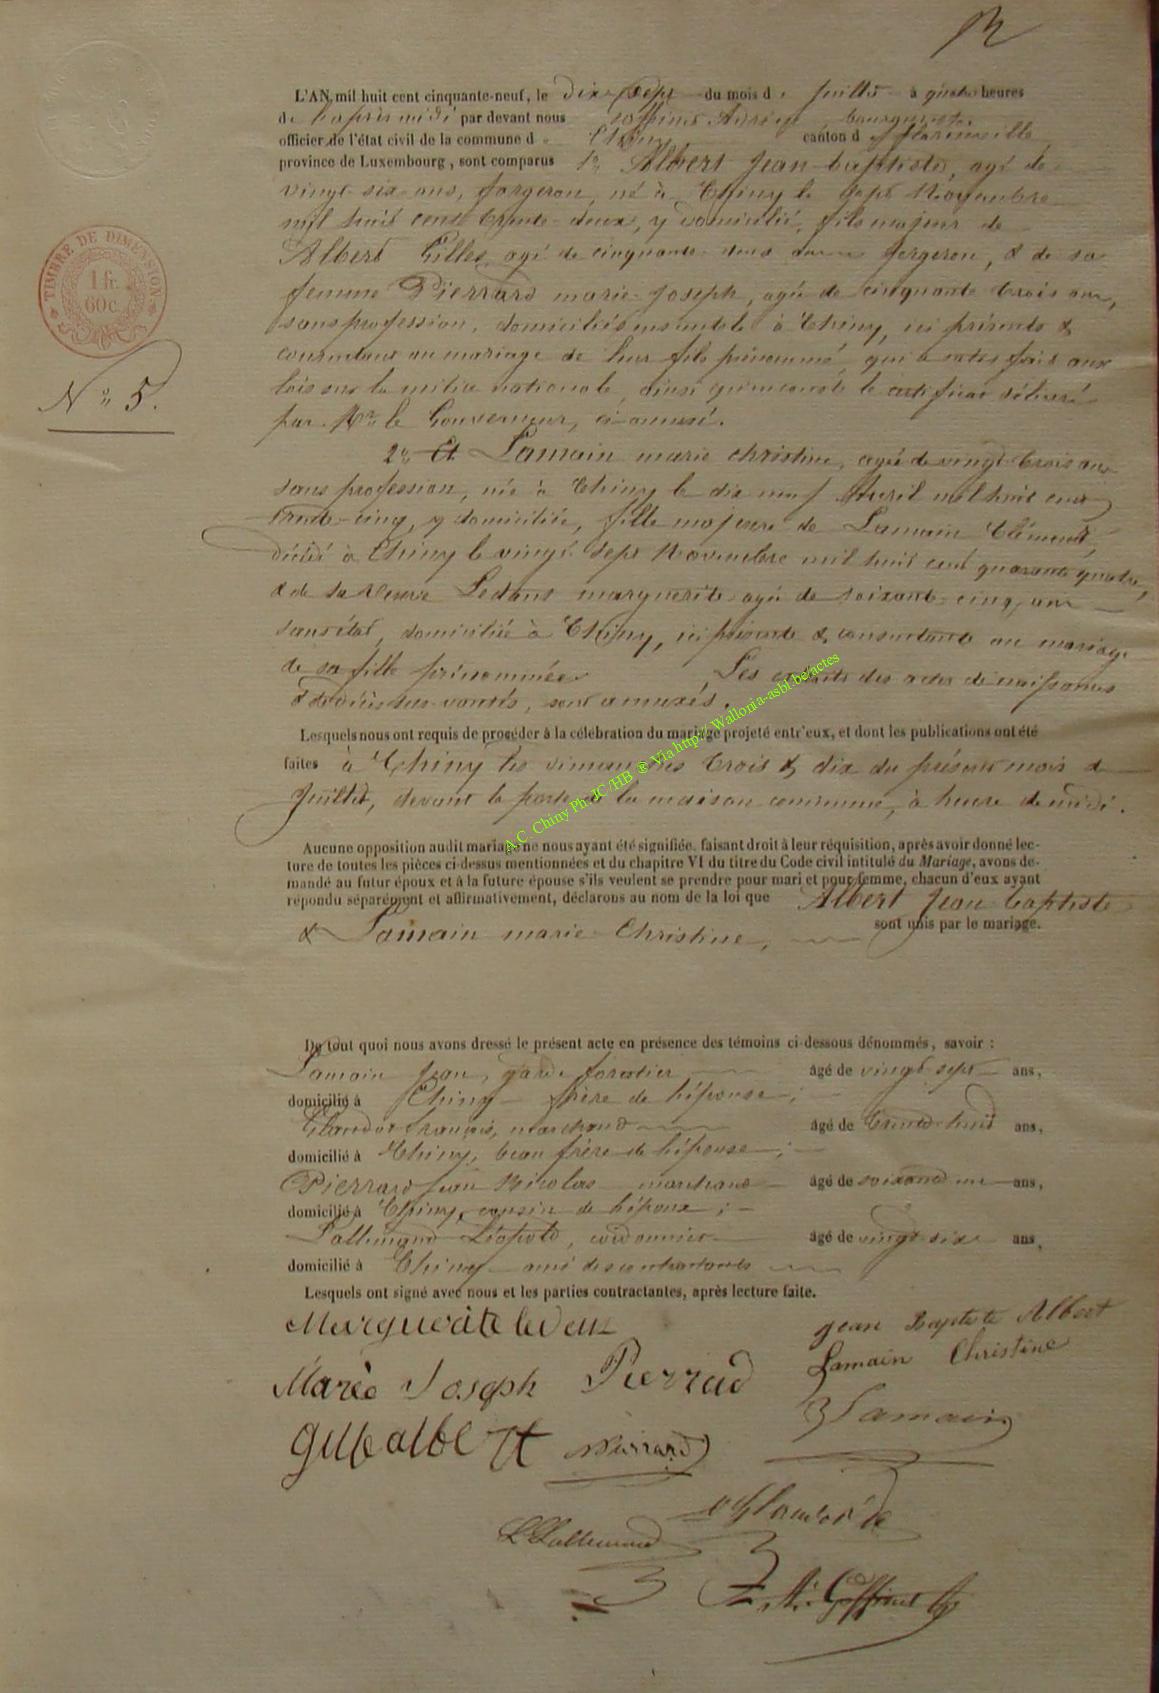 TIMBRE DE DIMENSION
1 fr.
60 c.
N° 5.
L'AN mil huit cent cinquante-neuf, le dix sept du mois de juillet à quatre heures
de l'après midi par devant nous Goffinet André, bourgmestre
officier de l'état civil de la commune de Chiny canton de Florenville
province de Luxembourg, sont comparus 1° Albert Jean baptiste, agé de
vingt six ans, forgeron, né à Chiny le sept Novembre
mil huit cent trente-deux, y domicilié, fils majeur de
Albert Gilles, agé de cinquante-deux ans forgeron, & de sa
femme Pierrard marie-Joseph, agée de cinquante trois ans,
sans profession, domiciliés ensemble à Chiny, ici présents &
consentans au mariage de leur fils prénommé, qui a satisfait aux
lois sur la milice nationale, ainsi qu'il conste le certificat délivré
par Mr le Gouverneur, ci-annexé.
2° Et Lamain marie christine, agée de vingt trois ans
sans profession, née à Chiny le dix neuf Avril mil huit cent
trente-cinq, y domiciliée, fille majeure de Lamain Clément,
décédé à Chiny le vingt-sept Novembre mil huit cent quarante quatre,
& de sa veuve Ledant marguerite agée de soixante-cinq ans
sans état, domiciliée à Chiny, ici présente & consentante au mariage
de sa fille prénommée. Les extraits des actes de naissances
& de décès sus-vantés, sont annexés.
Lesquels nous ont requis de procéder à la célébration du mariage projeté entr'eux, et dont les publications ont été
faites à Chiny les dimanches trois & dix du présent mois de
Juillet, devant la porte de la maison commune, à heure de midi.
Aucune opposition audit mariage ne nous ayant été signifiée, faisant droit à leur réquisition, après avoir donné lec-
ture de toutes les pièces ci-dessus mentionnées et du chapitre VI du titre du Code civil intitulé du Mariage, avons de-
mandé au futur époux et à la future épouse s'ils veulent se prendre pour mari et pour femme, chacun d'eux ayant
répondu séparément et affirmativement, déclarons au nom de la loi que Albert Jean baptiste
& Lamain marie Christine, sont unis par le mariage.
De tout quoi nous avons dressé le présent acte en présence des témoins ci-dessous dénommés, savoir :
Lamain Jean, garde forestier âgé de vingt sept ans,
domicilié à Chiny frère de l'épouse;
françois, marchand âgé de trente huit ans,
domicilié à Chiny, beau frère de l'épouse;
Pierrard Jean Nicolas marchand âgé de soixante un ans,
domicilié à Chiny, cousin de l'époux;
Lallemand Léopold, cordonnier âgé de vingt six ans,
domicilié à Chiny ami des contractants
Lesquels ont signé avec nous et les parties contractantes, après lecture faite.
Marguerite ledan Jean Baptiste Albert
Marie Joseph Pierrard Lamain Christine
Gille albert Pierrard J Lamain
L Lallemand
A. Goffinet
A.C. Chiny Ph. JC /HB ® Via http:// Wallonia-asbl.be/actes